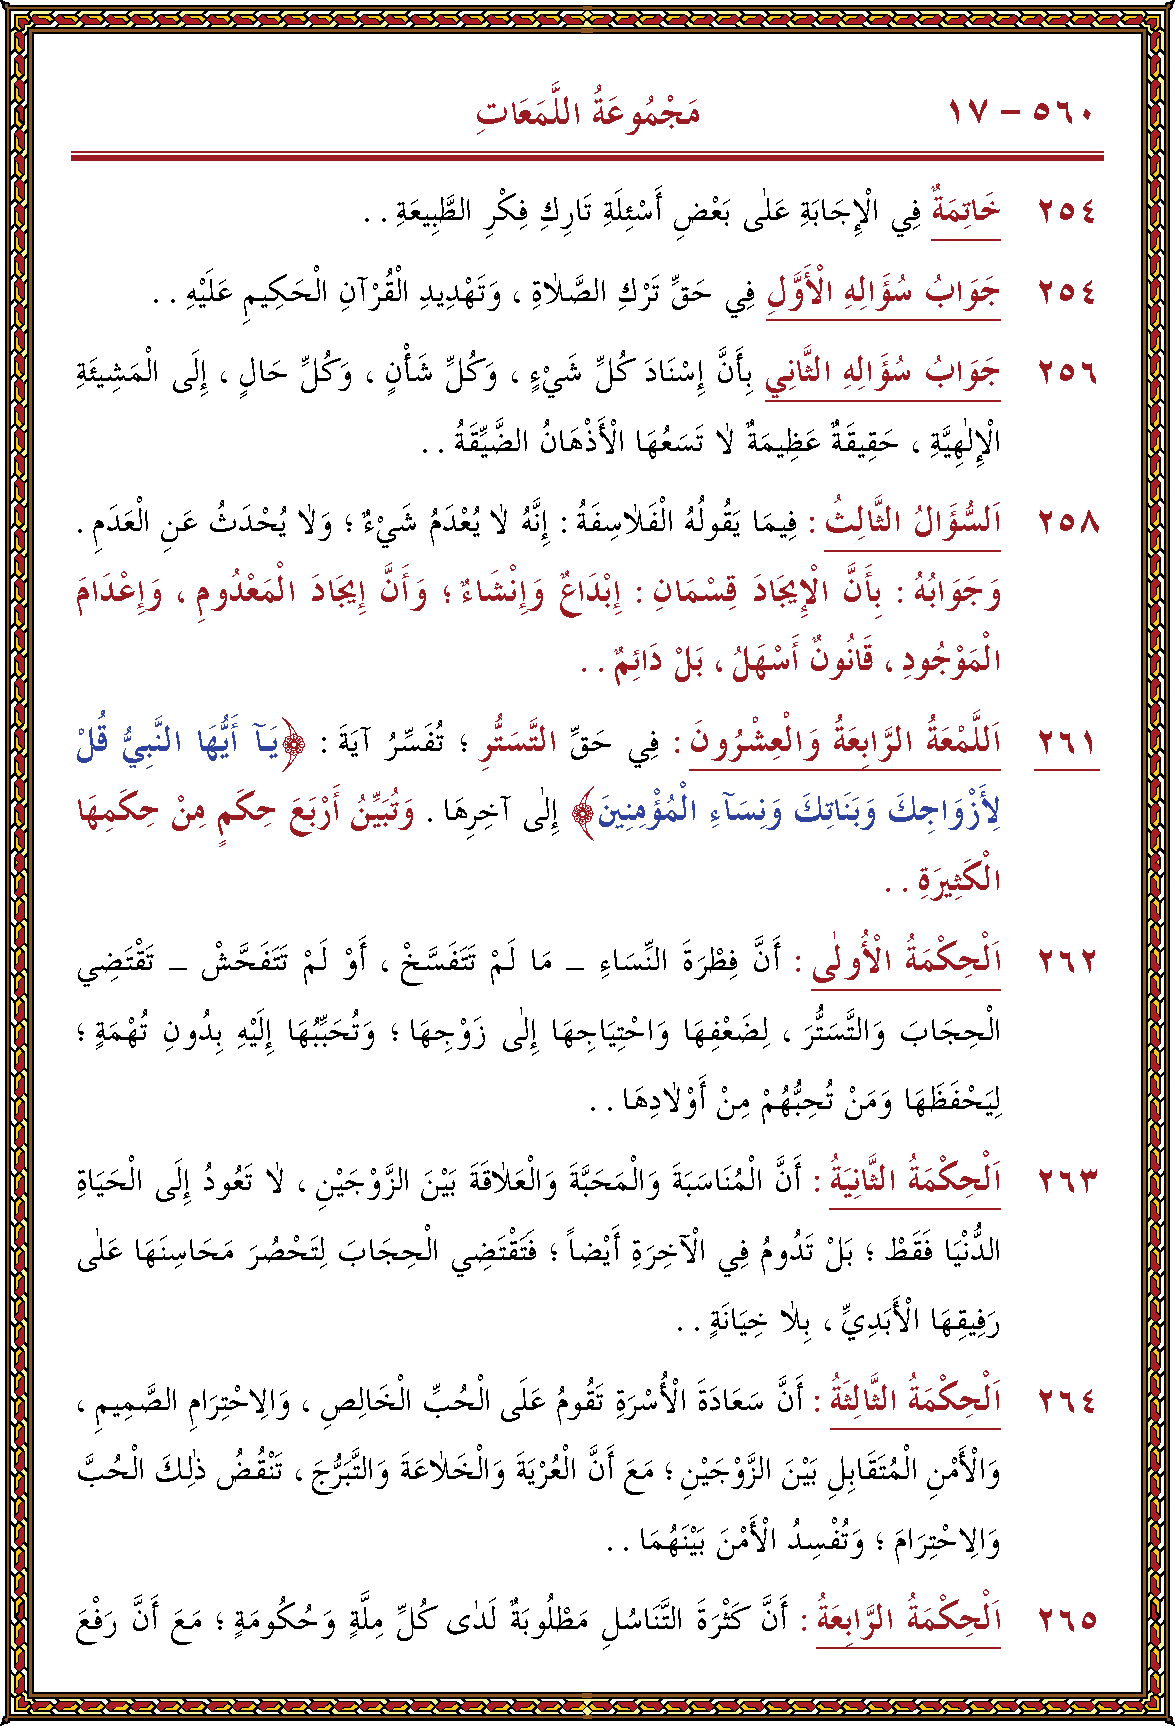 ٥٦٠ – ١٧ مَجْمُوعَةُ اللَّمَعَاتِ
٢٥٤ خَاتِمَةٌ فِي الْإِجَابَةِ عَلٰى بَعْضِ أَسْئِلَةِ تَارِكِ فِكْرِ الطَّبِيعَةِ . .
٢٥٤ جَوَابُ سُؤَالِهِ الْأَوَّلِ فِي حَقِّ تَرْكِ الصَّلاٰةِ ، وَتَهْدِيدِ الْقُرْآنِ الْحَكِيمِ عَلَيْهِ . .
٢٥٦ جَوَابُ سُؤَالِهِ الثَّانِي بِأَنَّ إِسْنَادَ كُلِّ شَيْءٍ ، وَكُلِّ شَأْنٍ ، وَكُلِّ حَالٍ ، إِلَى الْمَشِيئَةِ
الْإِلٰهِيَّةِ ، حَقِيقَةٌ عَظِيمَةٌ لاٰ تَسَعُهَا الْأَذْهَانُ الضَّيِّقَةُ . .
٢٥٨ اَلسُّؤَالُ الثَّالِثُ : فِيمَا يَقُولُهُ الْفَلاٰسِفَةُ : إِنَّهُ لاٰ يُعْدَمُ شَيْءٌ ؛ وَلاٰ يُحْدَثُ عَنِ الْعَدَمِ .
وَجَوَابُهُ : بِأَنَّ الْإِيجَادَ قِسْمَانِ : إِبْدَاعٌ وَإِنْشَاءٌ ؛ وَأَنَّ إِيجَادَ الْمَعْدُومِ ، وَإِعْدَامَ
الْمَوْجُودِ ، قَانُونٌ أَسْهَلُ ، بَلْ دَائِمٌ . .
٢٦١ اَللَّمْعَةُ الرَّابِعَةُ وَالْعِشْرُونَ : فِي حَقِّ التَّسَتُّرِ ؛ تُفَسِّرُ آيَةَ : ﴿يَـآ أَيُّهَا النَّبِيُّ قُلْ
لِأَزْوَاجِكَ وَبَنَاتِكَ وَنِسَآءِ الْمُؤْمِنِينَ﴾ إِلٰى آخِرِهَا . وَتُبَيِّنُ أَرْبَعَ حِكَمٍ مِنْ حِكَمِهَا
الْكَثِيرَةِ . .
٢٦٢ اَلْحِكْمَةُ الْأُولٰى : أَنَّ فِطْرَةَ النِّسَاءِ – مَا لَمْ تَتَفَسَّخْ ، أَوْ لَمْ تَتَفَحَّشْ – تَقْتَضِي
الْحِجَابَ وَالتَّسَتُّرَ ، لِضَعْفِهَا وَاحْتِيَاجِهَا إِلٰى زَوْجِهَا ؛ وَتُحَبِّبُهَا إِلَيْهِ بِدُونِ تُهْمَةٍ ؛
لِيَحْفَظَهَا وَمَنْ تُحِبُّهُمْ مِنْ أَوْلاٰدِهَا . .
٢٦٣ اَلْحِكْمَةُ الثَّانِيَةُ : أَنَّ الْمُنَاسَبَةَ وَالْمَحَبَّةَ وَالْعَلاٰقَةَ بَيْنَ الزَّوْجَيْنِ ، لاٰ تَعُودُ إِلَى الْحَيَاةِ
الدُّنْيَا فَقَطْ ؛ بَلْ تَدُومُ فِي الْآخِرَةِ أَيْضاً ؛ فَتَقْتَضِي الْحِجَابَ لِتَحْصُرَ مَحَاسِنَهَا عَلٰى
رَفِيقِهَا الْأَبَدِيِّ ، بِلاٰ خِيَانَةٍ . .
٢٦٤ اَلْحِكْمَةُ الثَّالِثَةُ : أَنَّ سَعَادَةَ الْأُسْرَةِ تَقُومُ عَلَى الْحُبِّ الْخَالِصِ ، وَالِاحْتِرَامِ الصَّمِيمِ ،
وَالْأَمْنِ الْمُتَقَابِلِ بَيْنَ الزَّوْجَيْنِ ؛ مَعَ أَنَّ الْعُرْيَةَ وَالْخَلاٰعَةَ وَالتَّبَرُّجَ ، تَنْقُضُ ذٰلِكَ الْحُبَّ
وَالِاحْتِرَامَ ؛ وَتُفْسِدُ الْأَمْنَ بَيْنَهُمَا . .
٢٦٥ اَلْحِكْمَةُ الرَّابِعَةُ : أَنَّ كَثْرَةَ التَّنَاسُلِ مَطْلُوبَةٌ لَدٰى كُلِّ مِلَّةٍ وَحُكُومَةٍ ؛ مَعَ أَنَّ رَفْعَ